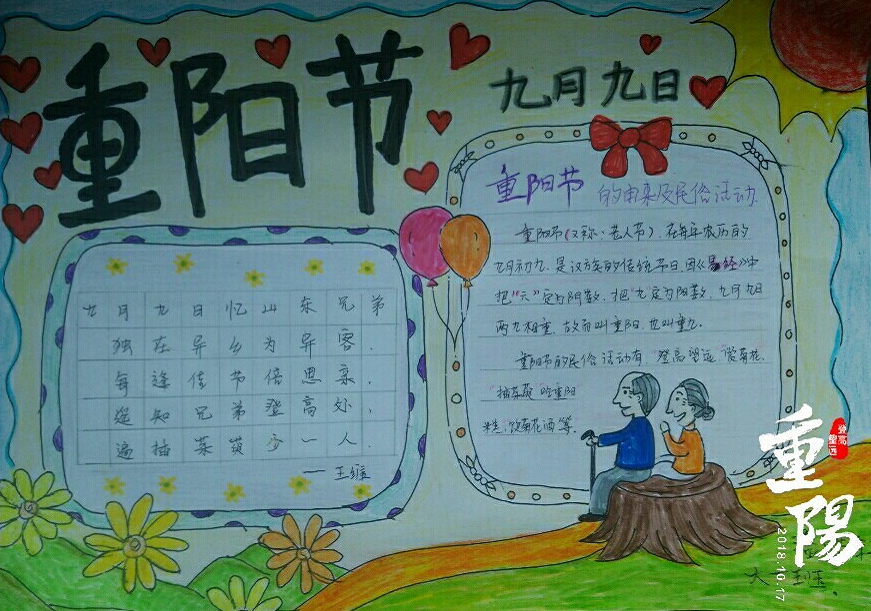 重阳节
九月九日
九月九日忆山东兄弟
独在异乡为异客,
每逢佳节倍思亲.
遥知兄弟登高处,
遍插茱萸少一人.
——王维
重阳节 的由来及民俗活动.
重阳节(又称:老人节).在每年农历的
九月初九.是汉族的传统节日.因《易经》中
把"六"定为阴数.把"九"定为阳数.九月九日
两九相重.故而叫重阳.也叫重九.
重阳节的民俗活动有.登高望远."赏菊花.
"插茱萸 吃重阳
糕.饮菊花酒等.
登高
望远
重陽
2018.10.17
大 班